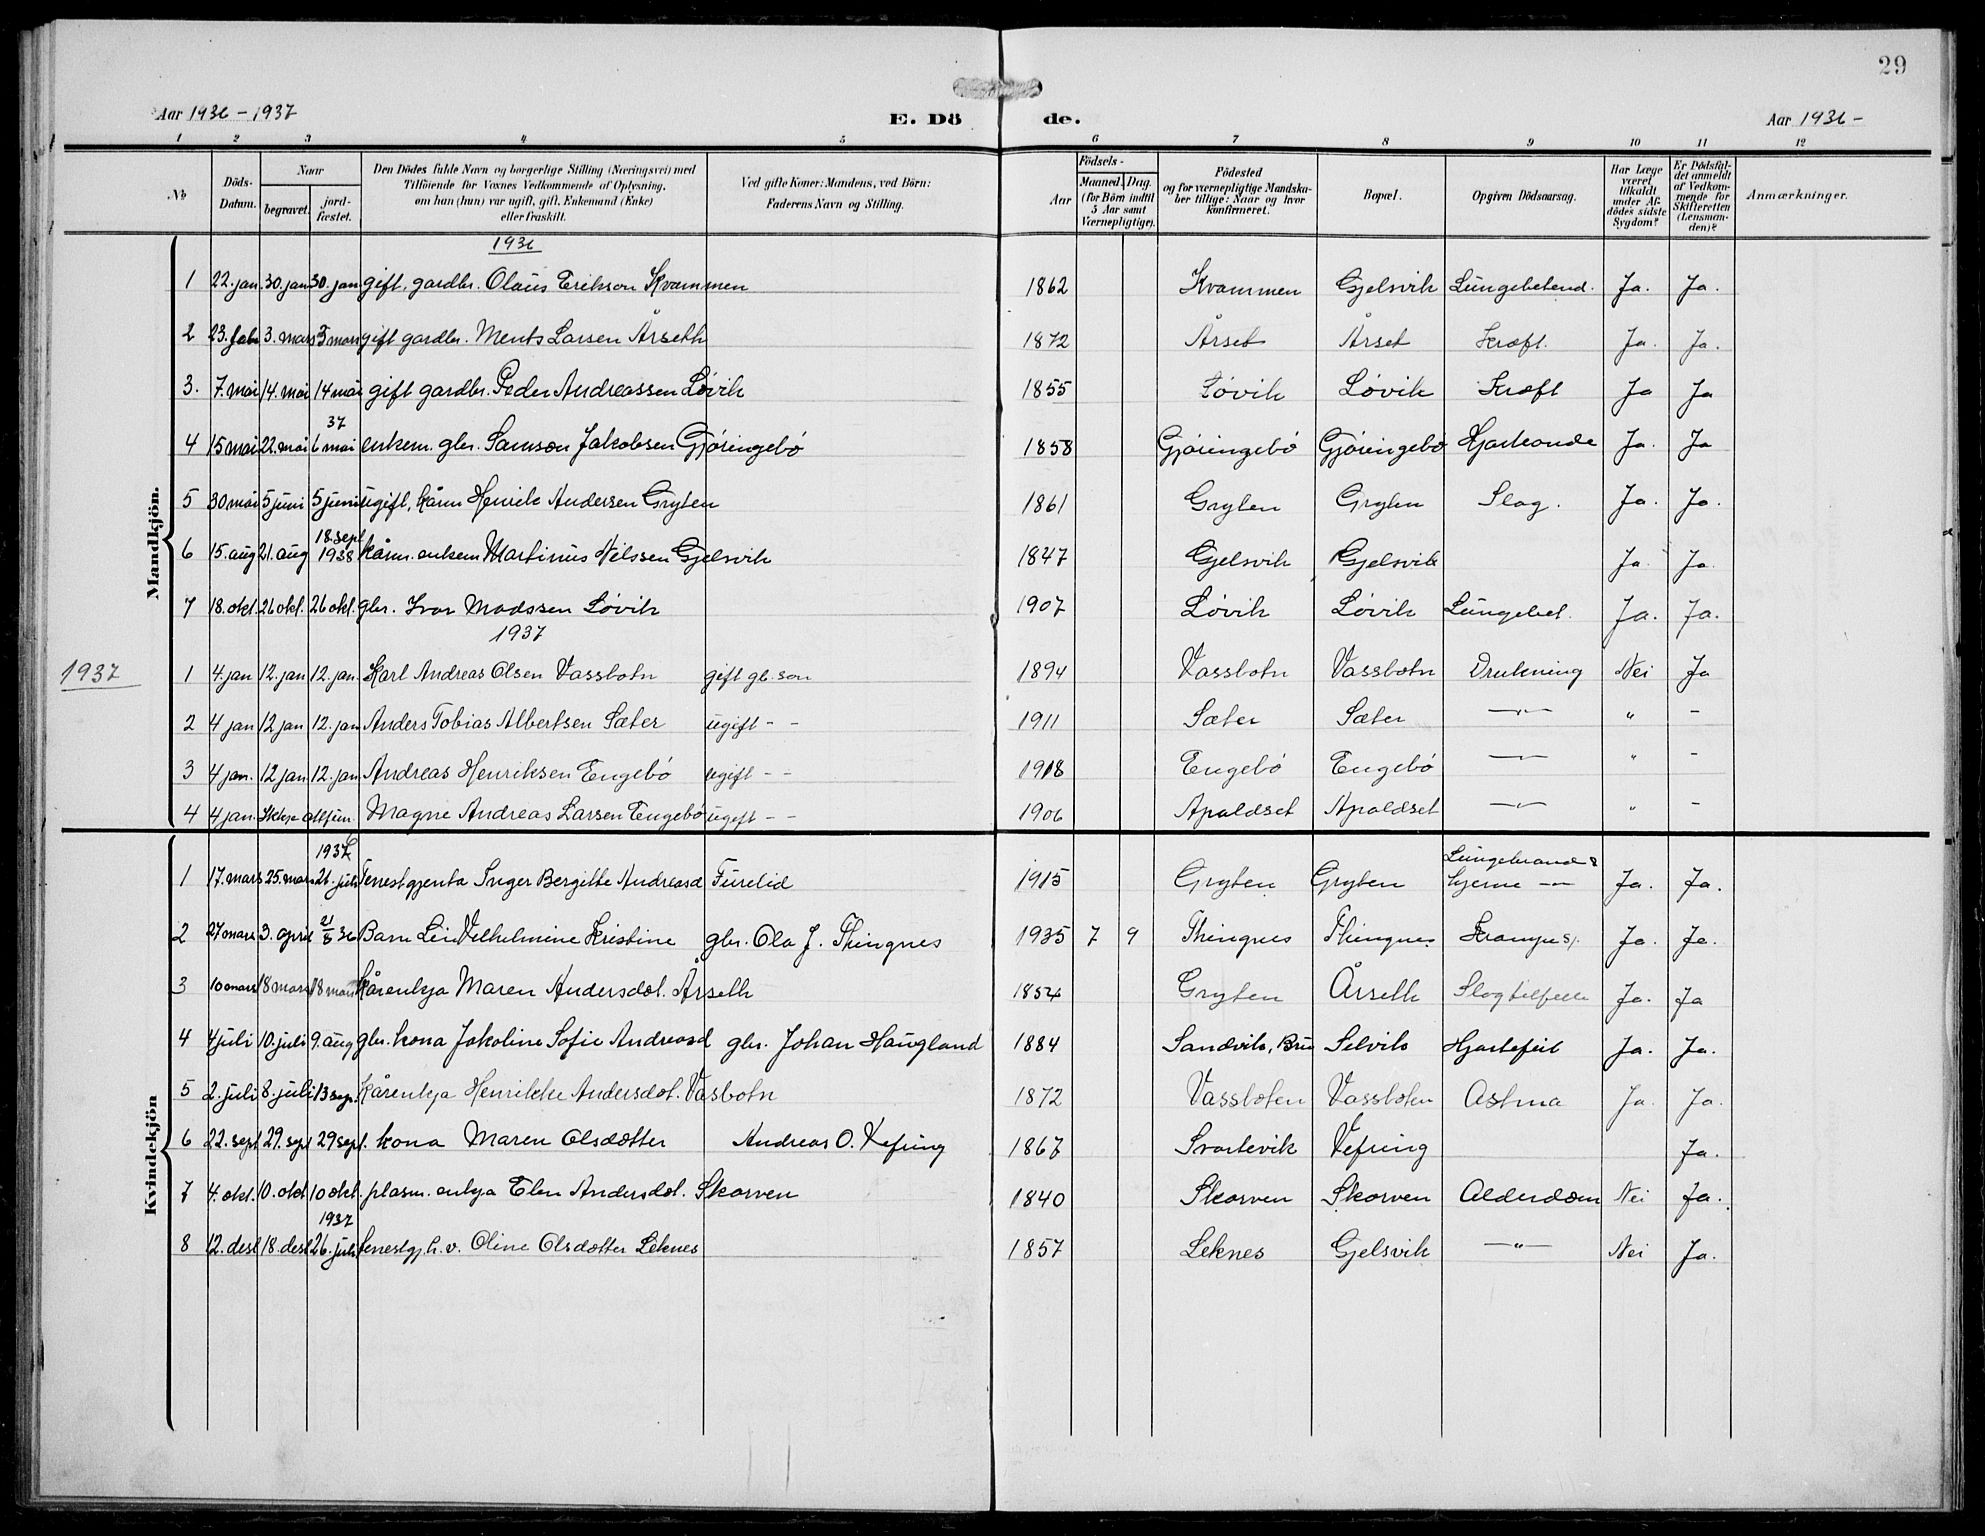 29
Aar 1936 - 1937
E. Dö de.
Aar 1936 -
1 2 3 4 5 6 7 8 9 10 11 12
№
Döds-Datum.
Naar
begravet.
jord-fæstet.
Den Dödes fulde Navn og borgerlige Stilling (Næringsvei) med
Tilföiende for Voxnes Vedkommende af Oplysning,
om han (hun) var ugift, gift, Enkemand (Enke)
eller fraskilt.
Ved gifte Koner: Mandens, ved Börn:
Faderens Navn og Stilling.
Födsels-
Aar
Maaned. Dag.
(for Börn indtil
5 Aar samt
Værnepligtige).
Födested
og for værnepligtige Mandska-
ber tillige: Naar og hvor
konfirmeret.
Bopæl.
Opgiven Dödsaarsag.
Har Læge
været
tilkaldt
under Af-
dödes sidste
Sygdom?
Er Dödsfal-
det anmeldt
af Vedkom-
mende for
Skifteretten
(Lensman-
den)?
Anmærkninger.
Mandkjön.
1936
1 22. jan. 30. jan 30. jan gift, gardbr. Olaus Erikson Kvammen 1862 Kvammen Gjelsvik Lungebetend. Ja. Ja.
2 23. febr 3. mars 3 mars gift gardbr. Ments Larsen Årseth 1872 Årset Årset Kræft. Ja. Ja.
3. 7. mai 14. mai 14 mai gift gardbr. Peder Andreassen Løvik 1855 Løvik Løvik Kræft Ja Ja
37
4 15 mai 22. mai 6 mai enkem. gbr. Samson Jakobsen Gjöringebö 1858 Gjöringebö Gjöringebö Hjarteonde Ja. Ja
5 30 mai 5 juni 5 juni ugift, kårm Henrik Andersen Gryten 1861 Gryten Gryten Slag. Ja. Ja.
18. sept
6 15. aug 21. aug 1938 kårm. enkem Martinus Nilssen Gjelsvik 1847 Gjelsvik Gjelsvik Ja. Ja.
7 18. okt. 26 okt. 26 okt. gbr. Ivar Madssen Løvik 1907 Løvik Løvik Lungebet. Ja. Ja.
1937
1937
1 4. jan 12. jan 12. jan. Karl Andreas Olsen Vassbotn gift gb. son 1894 Vassbotn Vassbotn Drukning Nei Ja
2 4 jan 12 jan 12. jan Anders Tobias Albertsen Sæter ugift - - 1911 Sæter Sæter —"— " -
3 4 jan. 12 jan 12. jan Andreas Henriksen Engebö ugift - - 1918 Engebö Engebö —"— " -
4 4 jan. Ikkje attfun. Magne Andreas Larsen Engebö ugift - - 1906 Apaldset Apaldset —"— " -
Kvindekjön
1936
Lungebrand &
1 17. mars 25. mars 21. juli Tenestgjenta Inger Bergitte Andreasd Furelid 1915 Gryten Gryten hjerne —"— Ja. Ja.
2 27 mars 3. april 21/5 36 Barn Liv Vilhelmine Kristine gbr. Ola J. Thingnes 1935 7 9 Thingnes Thingnes Krampe Ja. Ja.
3 10 mars 18 mars 18 mars Kårenkja Maren Andersdot. Årseth 1854 Gryten Årseth Slagtilfelle Ja. Ja
4 4 juli 10. juli 9. aug gbr. kona Jakoline Sofie Andreasd gbr. Johan Haugland 1884 Sandvik, Bru Selvik Hjartefeil Ja. Ja.
5 2. juli 8. juli 13 sep. Kårenkja Henrikke Andersdot. Vasbotn 1872 Vassboten Vassboten Astma Ja. Ja.
6 22. sept 29. sept 29 sept. kona Maren Olsdotter Andreas O. Vefring 1867 Svartevik Vefring Ja.
7 4. okt. 10. okt 10 okt. plasm. enkja Elen Andersdot. Skorven 1840 Skorven Skorven Alderdom Nei Ja.
1937
8 12. des 18. des 26. juli tenestgj. h. v. Oline Olsdotter Leknes 1857 Leknes Gjelsvik —"— Nei Ja.